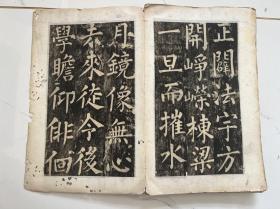 正闢法宇方
開崢嶸棟梁
一旦而摧水
月鏡像無心
去來徒令後
學瞻仰俳佪